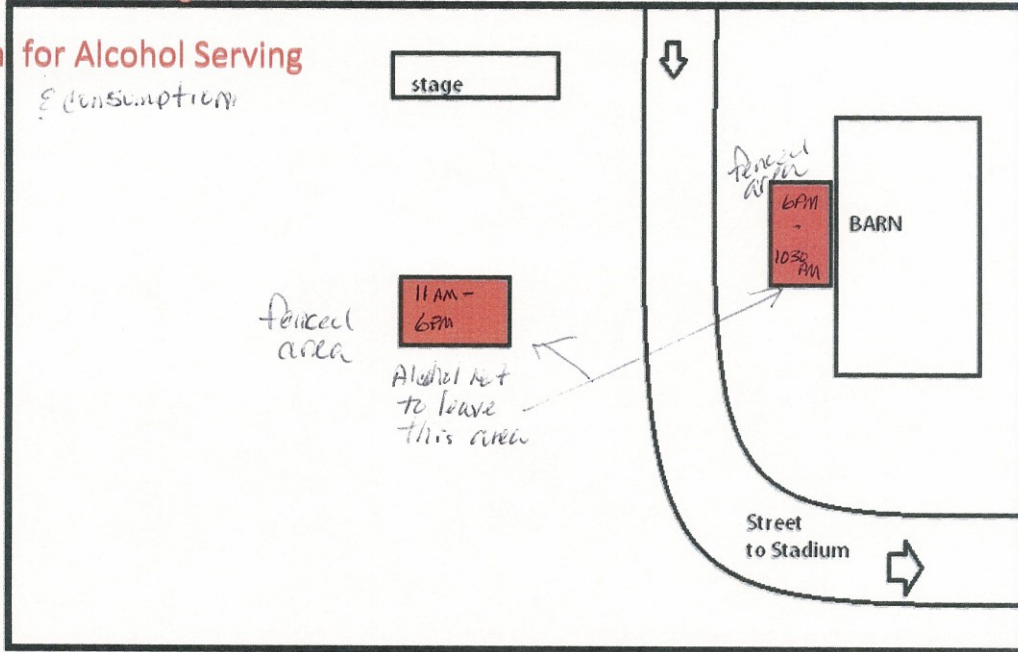 for Alcohol Serving
& consumption
stage
fenced
area
6PM
-
1030
AM
BARN
11 AM -
6PM
fenced
area
Alcohol not
to leave
this area
Street
to Stadium